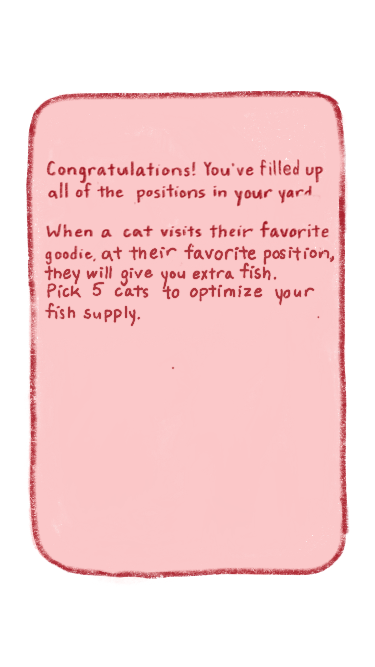 Congratulations! You've filled up
all of the positions in your yard.
When a cat visits their favorite
goodie, at their favorite position,
they will give you extra fish.
Pick 5 cats to optimize your
fish supply.